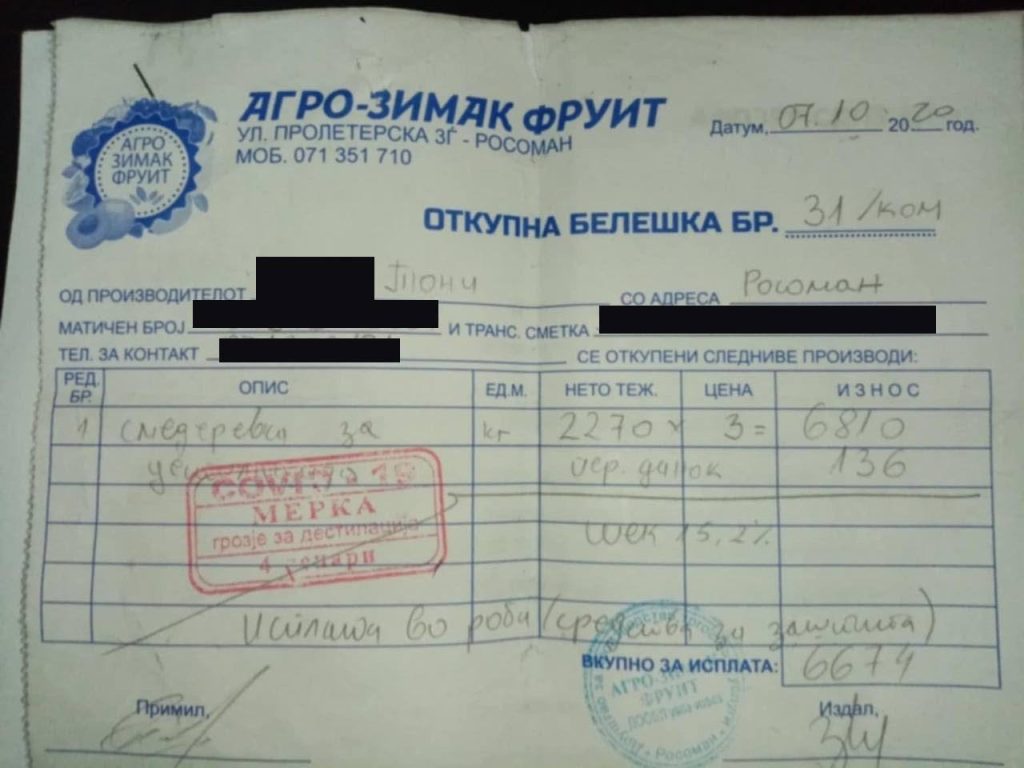 АГРО-ЗИМАК ФРУИТ
УЛ. ПРОЛЕТЕРСКА 3Ѓ - РОСОМАН
МОБ. 071 351 710
АГРО
ЗИМАК
ФРУИТ
Датум, 07.10 2020 год.
ОТКУПНА БЕЛЕШКА БР. 31/ком
ОД ПРОИЗВОДИТЕЛОТ Тони СО АДРЕСА Росоман
МАТИЧЕН БРОЈ И ТРАНС. СМЕТКА
ТЕЛ. ЗА КОНТАКТ СЕ ОТКУПЕНИ СЛЕДНИВЕ ПРОИЗВОДИ:
РЕД. БР. ОПИС ЕД.М. НЕТО ТЕЖ. ЦЕНА ИЗНОС
1 смедеревка за кг 2270 x 3= 6810
пер. данок 136
COVID 19
МЕРКА
грозје за дестилација
4 денари
шек 15,2%
Исплата во роба (средства за заштита)
ВКУПНО ЗА ИСПЛАТА: 6674
АГРО-ЗИМАК
ФРУИТ
Росоман
Примил,
Издал,